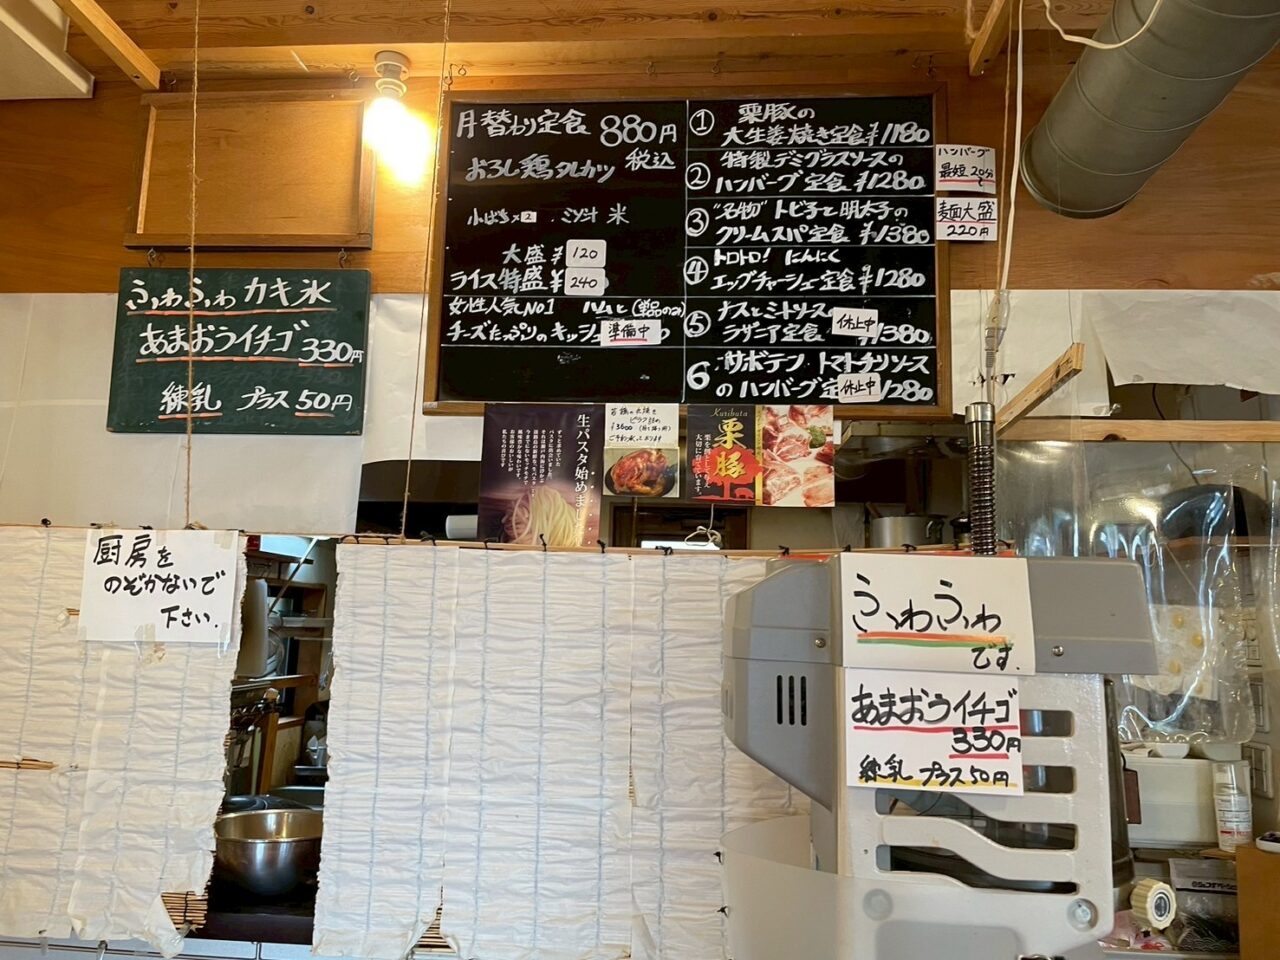 月替わり定食 880円
おろし鶏タレカツ 税込
小ばち×2 ミソ汁 米
大盛 ¥120
ライス特盛 ¥240
女性人気No1 ハムと(単品のみ)
チーズたっぷりのキッシュ 準備中
① 栗豚の
大生姜焼き定食 ¥1180
② 特製デミグラスソースの
ハンバーグ定食 ¥1280
③ "名物"トビ子と明太子の
クリームスパ定食 ¥1380
④ トロトロ!にんにく
エッグチャーシュー定食 ¥1280
⑤ ナスとミートソース
ラザニア定食 休止中 1380
6 サボテン トマトチリソース
のハンバーグ定 休止中 1280
ハンバーグ
最短20分
麺大盛
220円
ふわふわ カキ氷
あまおうイチゴ 330円
練乳 プラス50円
生パスタ始めま
¥3600
Kuributa
栗豚
栗を餌として与え
大切に育てています。
厨房を
のぞかないで
下さい.
ふわふわ
です.
あまおうイチゴ
330円
練乳 プラス50円